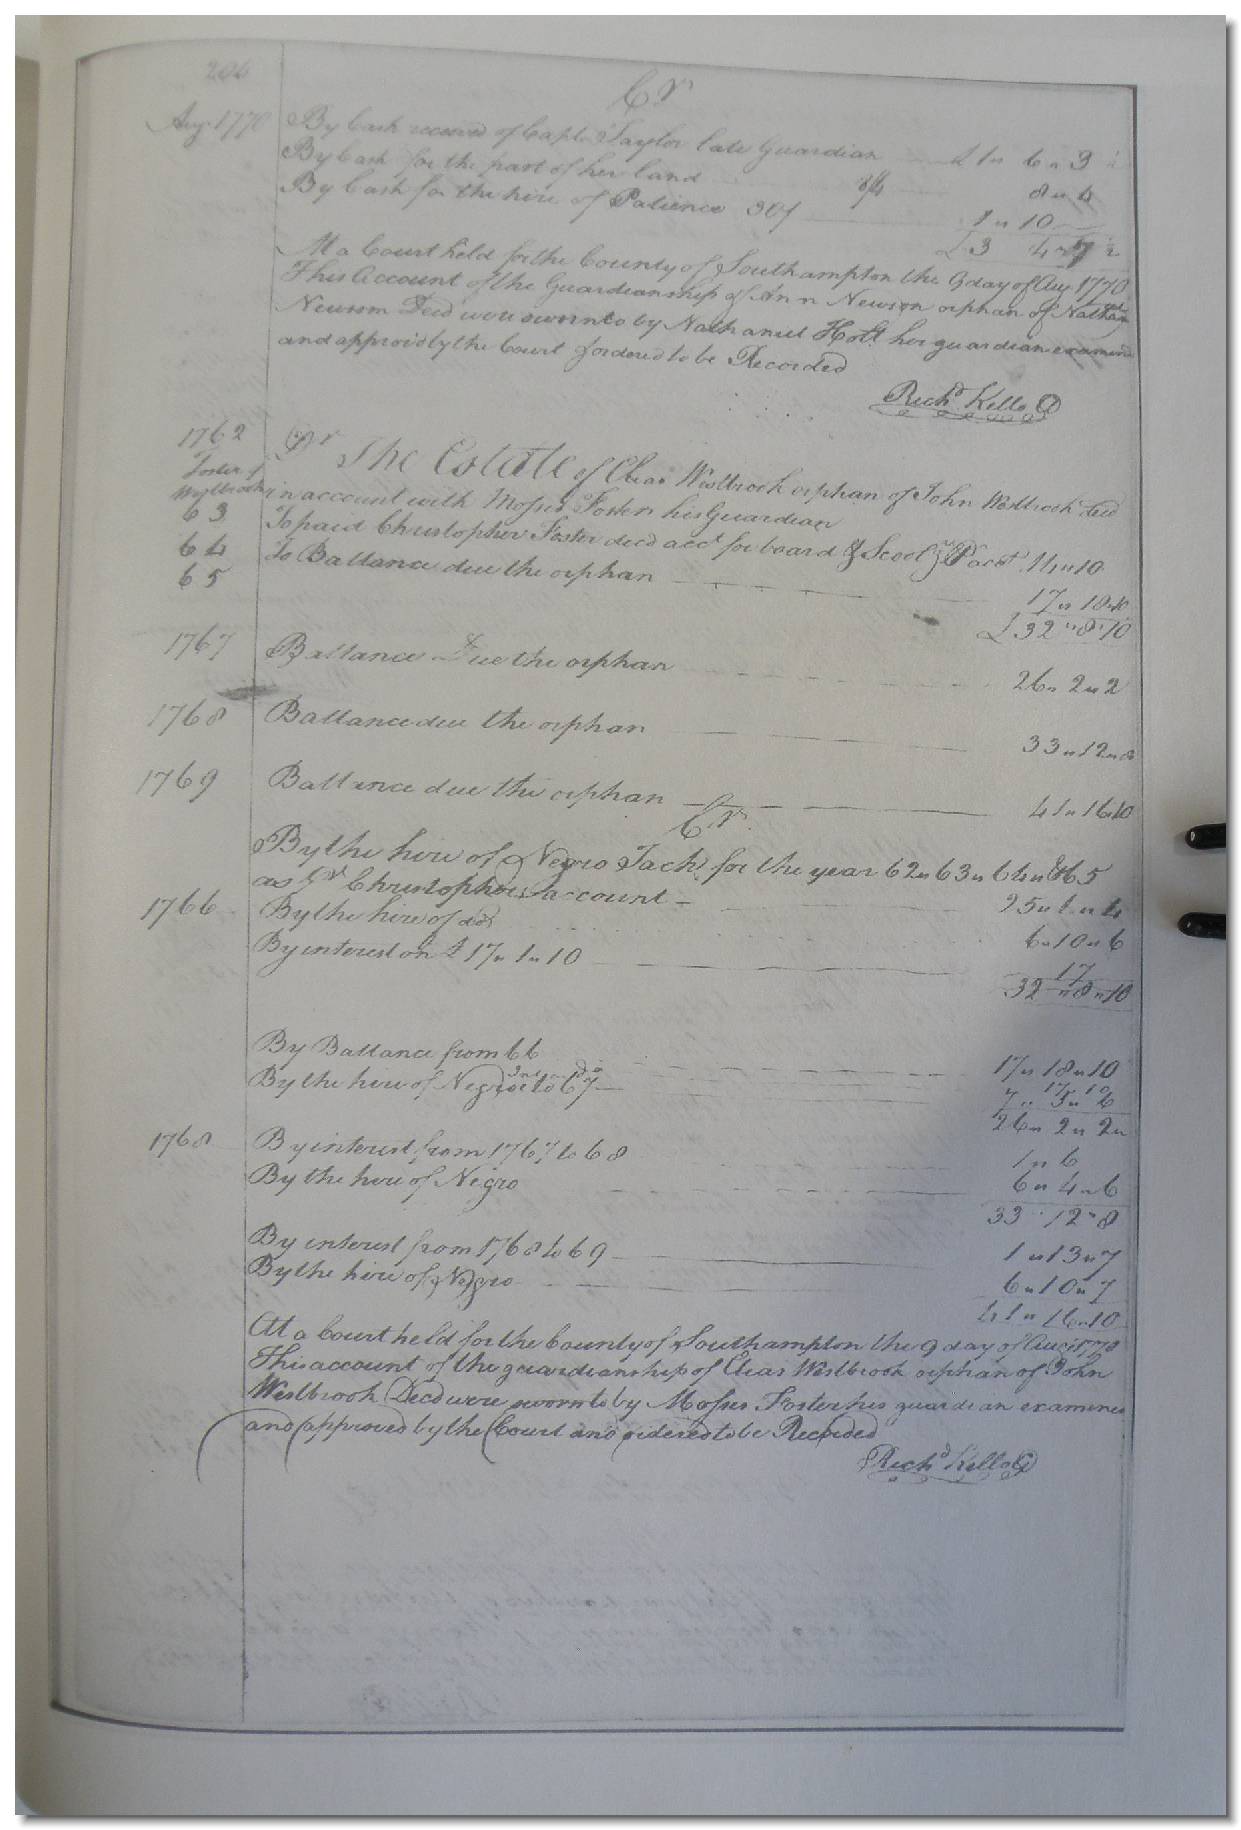 206
Cr
Aug. 1770 By Cash received of Capt. Taylor late Guardian £ 1 " 6 " 3
By Cash for the part of her land 8/4 8 " 4
By Cash for the hire of Patience 30/ 1 " 10
£ 3 4 " 7
At a Court held for the County of Southampton the 9 day of Aug 1770
This Account of the Guardianship of Ann Newsom orphan of Nathan
Newsom Decd were sworn to by Nathaniel Holt her guardian examined
and approvd by the Court & ordered to be Recorded
Richd Kello
1762 Dr The Estate of Elias Westbrook orphan of John Westbrook decd
Foster of Westbrook in account with Moses Foster his Guardian
63 To paid Christopher Foster decd acct for board & Scool pr acct 14 " 10
64 To Ballance due the orphan 17 " 18 " 10
65 £ 32 " 8 " 10
1767 Ballance Due the orphan 26 " 2 " 2
1768 Ballance due the orphan 33 " 12 " 8
1769 Ballance due the orphan 41 " 16 " 10
Cr
By the hire of Negro Jack for the year 62 " 63 " 64 " & 65
as pr Christophers account 25 " 1 " 4
1766 By the hire of do 6 " 10 " 6
By interest on £ 17 " 1 " 10 17
32 " 8 " 10
By Ballance from 66 17 " 18 " 10
17 10
By the hire of Negroe to 67 7 " 5 " 6
26 " 2 " 2 "
1768 By interest from 1767 to 68 1 " 6
By the hire of Negro 6 " 4 " 6
33 " 12 " 8
By interest from 1768 to 69 1 " 13 " 7
By the hire of Negro 6 " 10 " 7
41 " 16 " 10
At a Court held for the County of Southampton the 9 day of Aug 1770
This account of the guardianship of Elias Westbrook orphan of John
Westbrook Decd were sworn to by Moses Foster his guardian examined
and approved by the Court and ordered to be Recorded
Richd Kello